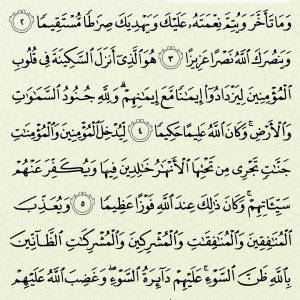 وَمَا تَأَخَّرَ وَيُتِمَّ نِعْمَتَهُۥ عَلَيْكَ وَيَهْدِيَكَ صِرَٰطًا مُّسْتَقِيمًا ٢
وَيَنصُرَكَ ٱللَّهُ نَصْرًا عَزِيزًا ٣ هُوَ ٱلَّذِىٓ أَنزَلَ ٱلسَّكِينَةَ فِى قُلُوبِ
ٱلْمُؤْمِنِينَ لِيَزْدَادُوٓا۟ إِيمَٰنًا مَّعَ إِيمَٰنِهِمْ ۗ وَلِلَّهِ جُنُودُ ٱلسَّمَٰوَٰتِ
وَٱلْأَرْضِ ۚ وَكَانَ ٱللَّهُ عَلِيمًا حَكِيمًا ٤ لِّيُدْخِلَ ٱلْمُؤْمِنِينَ وَٱلْمُؤْمِنَٰتِ
جَنَّٰتٍ تَجْرِى مِن تَحْتِهَا ٱلْأَنْهَٰرُ خَٰلِدِينَ فِيهَا وَيُكَفِّرَ عَنْهُمْ
سَيِّـَٔاتِهِمْ ۚ وَكَانَ ذَٰلِكَ عِندَ ٱللَّهِ فَوْزًا عَظِيمًا ٥ وَيُعَذِّبَ
ٱلْمُنَٰفِقِينَ وَٱلْمُنَٰفِقَٰتِ وَٱلْمُشْرِكِينَ وَٱلْمُشْرِكَٰتِ ٱلظَّآنِّينَ
بِٱللَّهِ ظَنَّ ٱلسَّوْءِ ۚ عَلَيْهِمْ دَآئِرَةُ ٱلسَّوْءِ ۖ وَغَضِبَ ٱللَّهُ عَلَيْهِمْ